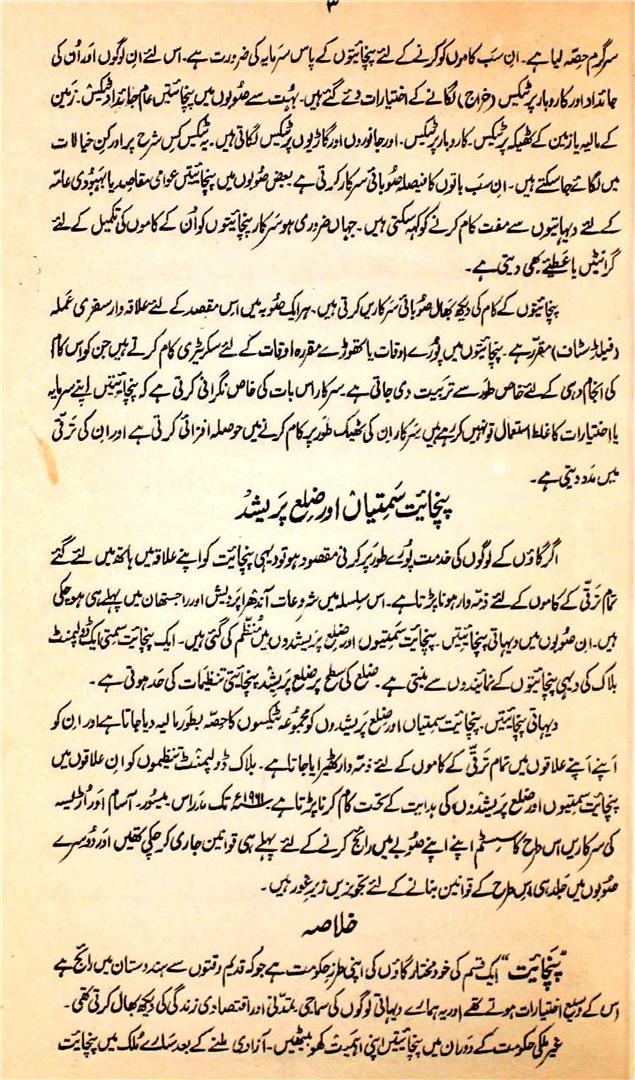 ۳
سرگرم حصّہ لیا ہے۔ اِن سب کاموں کو کرنے کے لئے پنچائیتوں کے پاس سرمایہ کی ضرورت ہے۔ اس لئے اِن لوگوں اور اُن کی
جائداد اور کاروبار پر ٹیکس (خراج) لگانے کے اختیارات دئے گئے ہیں۔ بہُت سے صُوبوں میں پنچائیتیں عام جائداد ٹیکس۔ زمین
کے مالیہ یا زمین کے ٹھیکہ پر ٹیکس۔ کاروبار پر ٹیکس۔ اور جانوروں اور گاڑیوں پر ٹیکس لگاتی ہیں۔ یہ ٹیکس کِس شرح پر اور کِن خیالات
میں لگائے جاسکتے ہیں۔ اِن سب باتوں کا فیصلہ صُوبائی سرکار کرتی ہے بعض صُوبوں میں پنچائیتیں عوامی مقاصد یا بہبُودی عامہ
کے لئے دیہاتیوں سے مفت کام کرنے کو کہہ سکتی ہیں۔ جہاں ضروری ہو سرکار پنچائیتوں کو اُن کے کاموں کی تکمیل کے لئے
گرانٹیں یا عَطیئے بھی دیتی ہے۔
پنچائیتوں کے کام کی دیکھ بھال صُوبائی سرکاریں کرتی ہیں۔ ہر ایک صُوبہ میں اِس مقصد کے لئے علاقہ وار سفری عَملہ
(فیلڈ سٹاف) مقرّر ہے۔ پنچائیتوں میں پُورے اوقات یا تھوڑے مقررہ اوقات کے لئے سکریٹری کام کرتے ہیں جن کو اس کام
کی انجام دہی کے لئے خاص طَور سے تربیت دی جاتی ہے۔ سرکار اس بات کی خاص نگرانی کرتی ہے کہ پنچائیتیں اپنے سرمایہ
یا اختیارات کا غلط استعمال تو نہیں کر رہے ہیں سرکار اِن کی ٹھیک طَور پر کام کرنے میں حوصلہ افزائی کرتی ہے اور اِن کی ترقّی
میں مَدد دیتی ہے۔
پنچائیت سَمِتیاں اور ضِلع پَریشد
اگر گاؤں کے لوگوں کی خدمت پُورے طَور پر کرنی مقصُود ہو تو دیہی پنچائیت کو اپنے علاقہ میں ہاتھ میں لئے گئے
تمام ترقّی کے کاموں کے لئے ذمّہ دار ہونا پڑتا ہے۔ اس سِلسِلہ میں شروعات آندھرا پردیش اور راجستھان میں پہلے ہی ہو چکی
ہیں۔ اِن صُوبوں میں دیہاتی پنچائیتیں۔ پنچائیت سَمِتیوں اور ضِلع پریشدوں میں مُنظّم کی گئی ہیں۔ ایک پنچائیت سمِتی ایک ڈولپمنٹ
بلاک کی دیہی پنچائیتوں کے نمائیندوں سے بنتی ہے۔ ضلع کی سطح پر ضلع پریشد پنچائیتی تنظیمات کی حَد ہوتی ہے۔
دیہاتی پنچائیتیں۔ پنچائیت سَمِتیاں اور ضلع پریشدوں کو مجمُوعہ ٹیکسوں کا حِصّہ بطور مالیہ دیا جاتا ہے اور اِن کو
اَپنے اَپنے علاقوں میں تمام ترقّی کے کاموں کے لئے ذمّہ دار ٹھیرایا جاتا ہے۔ بلاک ڈولپمنٹ تنظیموں کو اِن علاقوں میں
پنچائیت سمِتیوں اور ضلع پریشدوں کی ہدایت کے تحت کام کرنا پڑتا ہے۔ ۱۹۶۱ء تک مدراس۔ میسُور۔ آسام اور اُڑیسہ
کی سرکاریں اس طرح کا سِسٹم اپنے اپنے صُوبے میں رائج کرنے کے لئے پہلے ہی قوانین جاری کر چکی تھیں اور دُوسرے
صُوبوں میں جَلد ہی اِس طرح کے قوانین بنانے کے لئے تجویزیں زیرِ غور ہیں۔
خلاصہ
”پنچائیت“ ایک قسم کی خود مختار گاؤں کی اپنی طرزِ حکومت ہے جو کہ قدیم وقتوں سے ہندوستان میں رائج ہے
اس کے وسیع اختیارات ہوتے تھے اور یہ ہمارے دیہاتی لوگوں کی سماجی۔ تمدّنی اور اقتصادی زندگی کی دیکھ بھال کرتی تھی۔
غیر ملکی حکومت کے دَوران میں پنچائیتیں اپنی اہمیت کھو بیٹھیں۔ آزادی ملنے کے بعد سارے مُلک میں پنچائیت